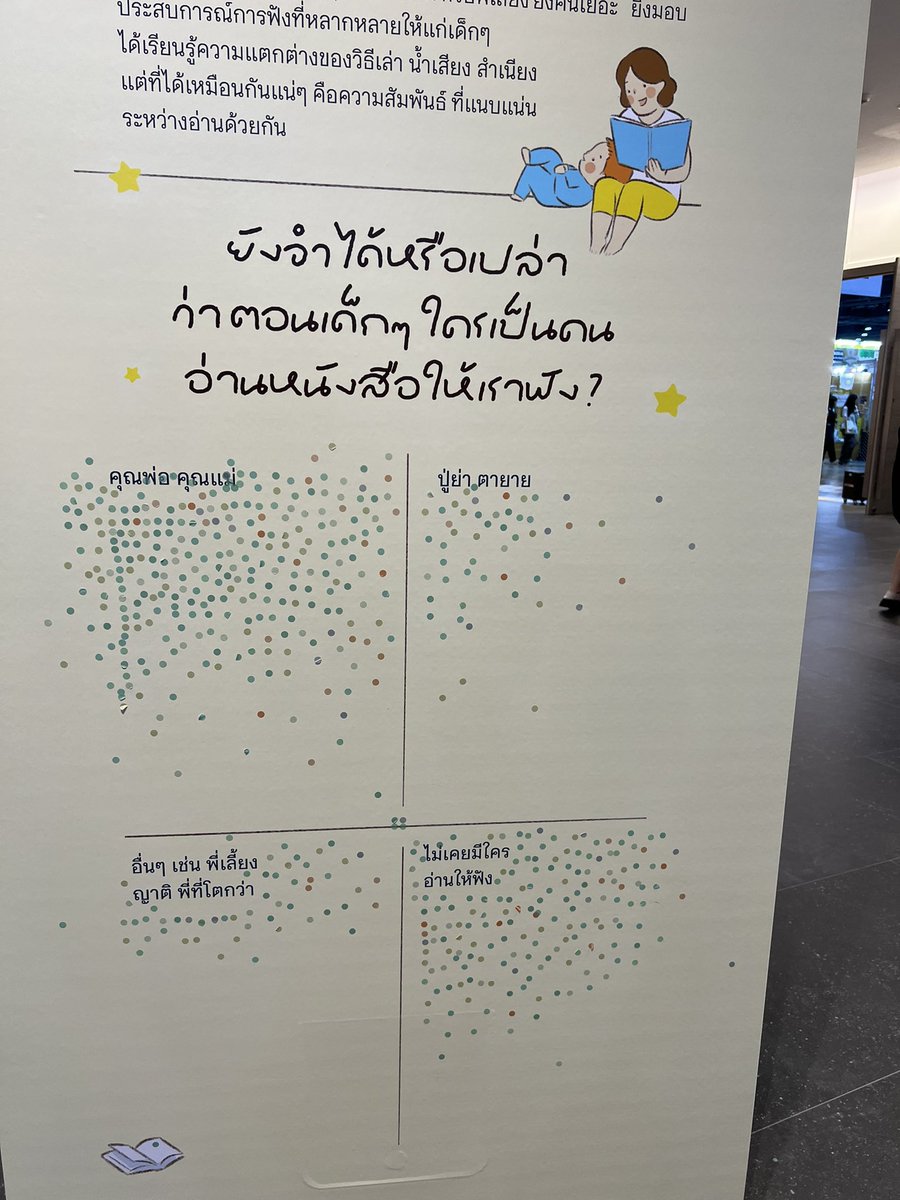 ยิ่งมอบ
ประสบการณ์การฟังที่หลากหลายให้แก่เด็กๆ
ได้เรียนรู้ความแตกต่างของวิธีเล่า น้ำเสียง สำเนียง
แต่ที่ได้เหมือนกันแน่ๆ คือความสัมพันธ์ ที่แนบแน่น
ระหว่างอ่านด้วยกัน
ยังจำได้หรือเปล่า
ว่าตอนเด็กๆ ใครเป็นคน
อ่านหนังสือให้เราฟัง?
คุณพ่อ คุณแม่
ปู่ย่า ตายาย
อื่นๆ เช่น พี่เลี้ยง
ญาติ พี่ที่โตกว่า
ไม่เคยมีใคร
อ่านให้ฟัง